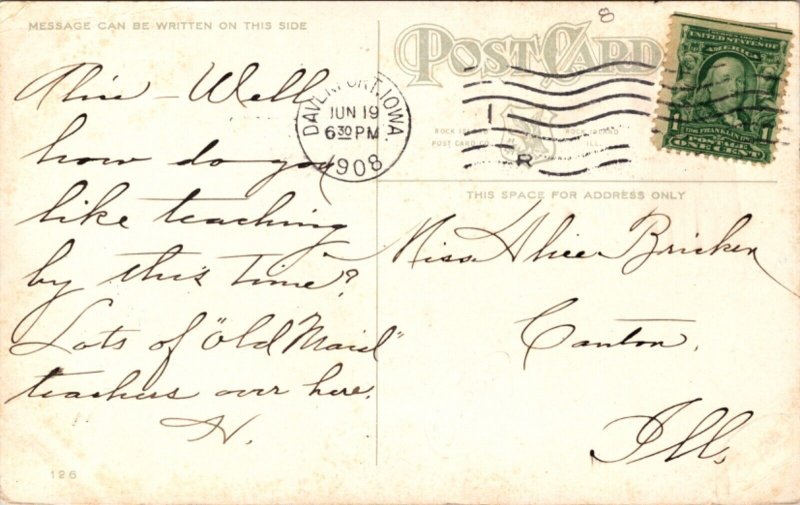 MESSAGE CAN BE WRITTEN ON THIS SIDE
8
POST CARD
Alice - Well
how do you
like teaching
by this time?
Lots of "Old Maid"
teachers over here.
N.
126
DAVENPORT, IOWA.
JUN 19
6 30 PM
1908
1
R
ROCK ISLAND
POST CARD CO.
ROCK ISLAND
ILL.
UNITED STATES OF
AMERICA
FRANKLIN
1 1
POSTAGE
ONE CENT
THIS SPACE FOR ADDRESS ONLY
Miss Alice Bricker
Canton,
Ill.